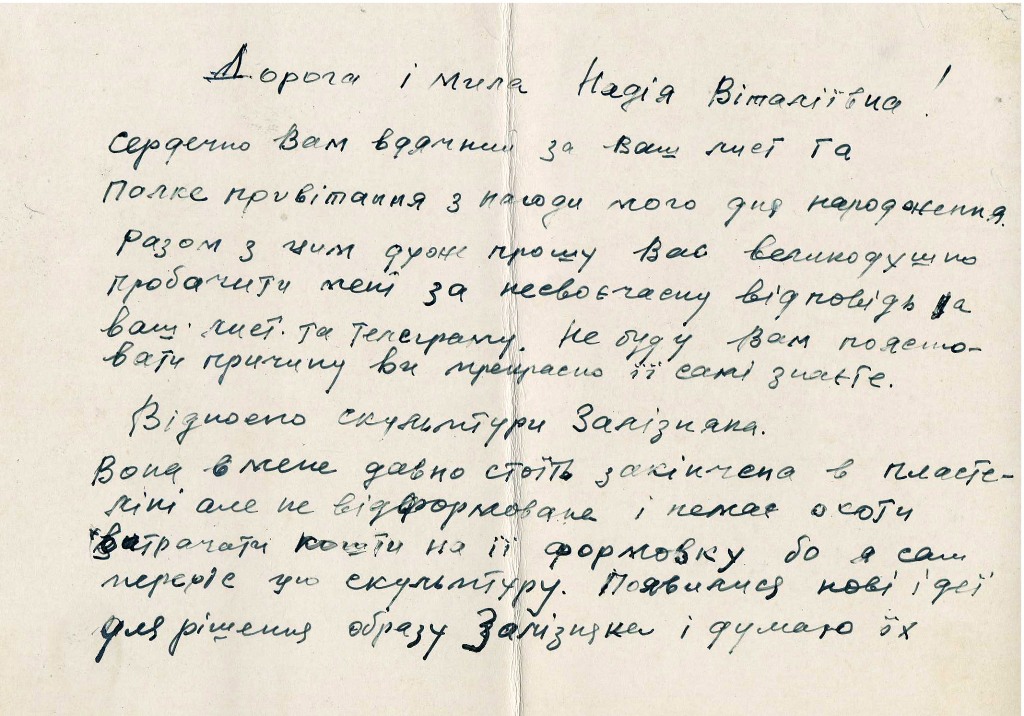 Дорога і мила Надія Віталіївна!
Сердечно Вам вдячний за Ваш лист та
палке привітання з нагоди мого дня народження.
Разом з ним дуже прошу Вас великодушно
пробачити мені за несвоєчасну відповідь на
ваш лист та телеграму. Не буду Вам поясню-
вати причину ви прекрасно її самі знаєте.
Відносно скульптури Залізняка.
Вона в мене давно стоїть закінчена в пласте-
ліні але не відформована і немає охоти
витрачати кошти на її формовку бо я сам
переріс цю скульптуру. Появилися нові ідеї
для рішення образу Залізняка і думаю їх